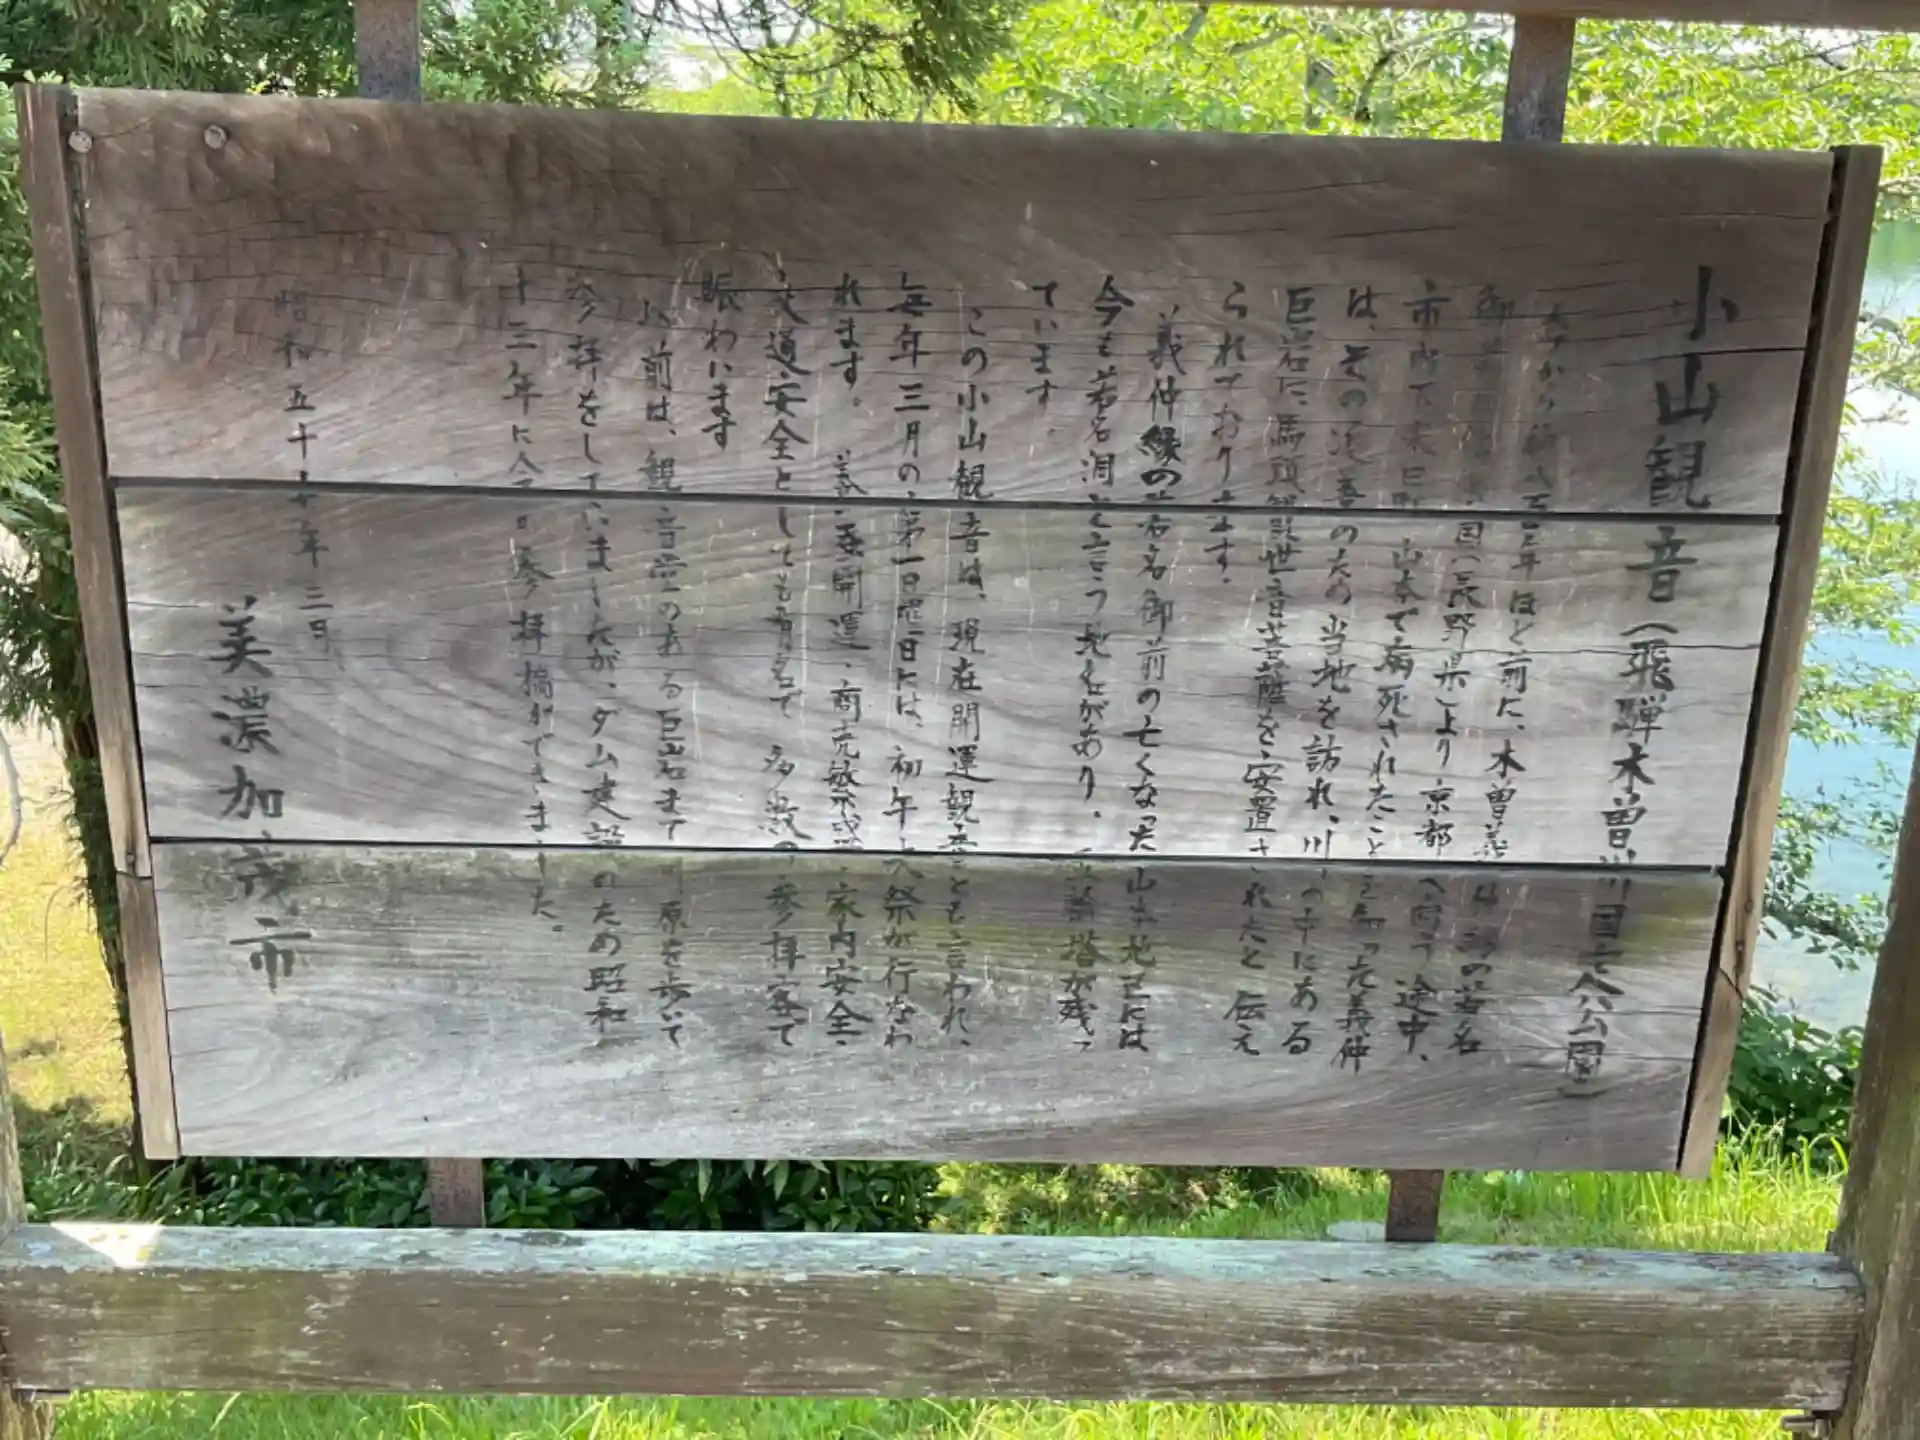 小山観音（飛騨木曽川国定公園）
今から約八百年ほど前に、木曽義
御 国（長野県）より京都へ向う途中、
市内下米田町 山本で病死されたこと
は、その追善のため当地を訪れ、川の中にある
巨岩に馬頭観世音菩薩を安置されたと伝え
られております。
義仲縁の若名御前の亡くなった山本地区には
今も若名洞と言う地名があり、 塔が残っ
ています。
この小山観音は、現在開運観音とも言われ、
毎年三月の第一日曜日には、初午大祭が行なわ
れます。 養蚕開運、商売繁盛、家内安全、
交通安全としても有名で 多数の参拝客で
賑わいます
以前は、観音堂のある巨岩まで川原を歩いて
参拝をしていましたが、ダム建設のため昭和
十三年に 参拝橋ができました。
昭和五十 年 三月
美濃加茂市